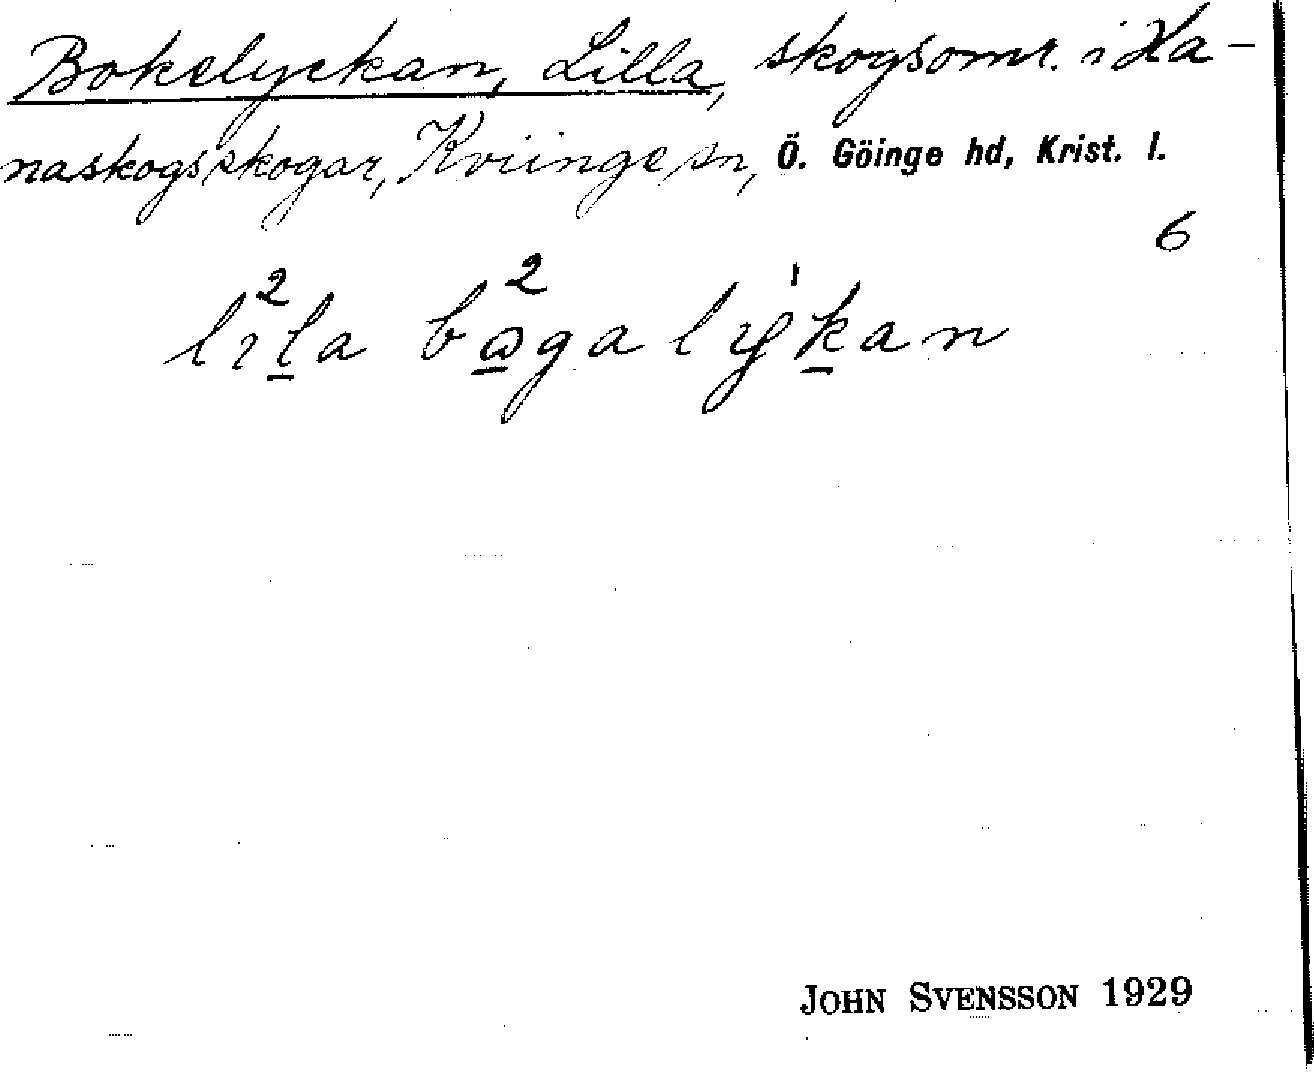 Bokelyckan, Lilla, skogsomr. i Ha-
naskogsskogar, Kviinge sn, Ö. Göinge hd, Krist. l.
6
JOHN SVENSSON 1929